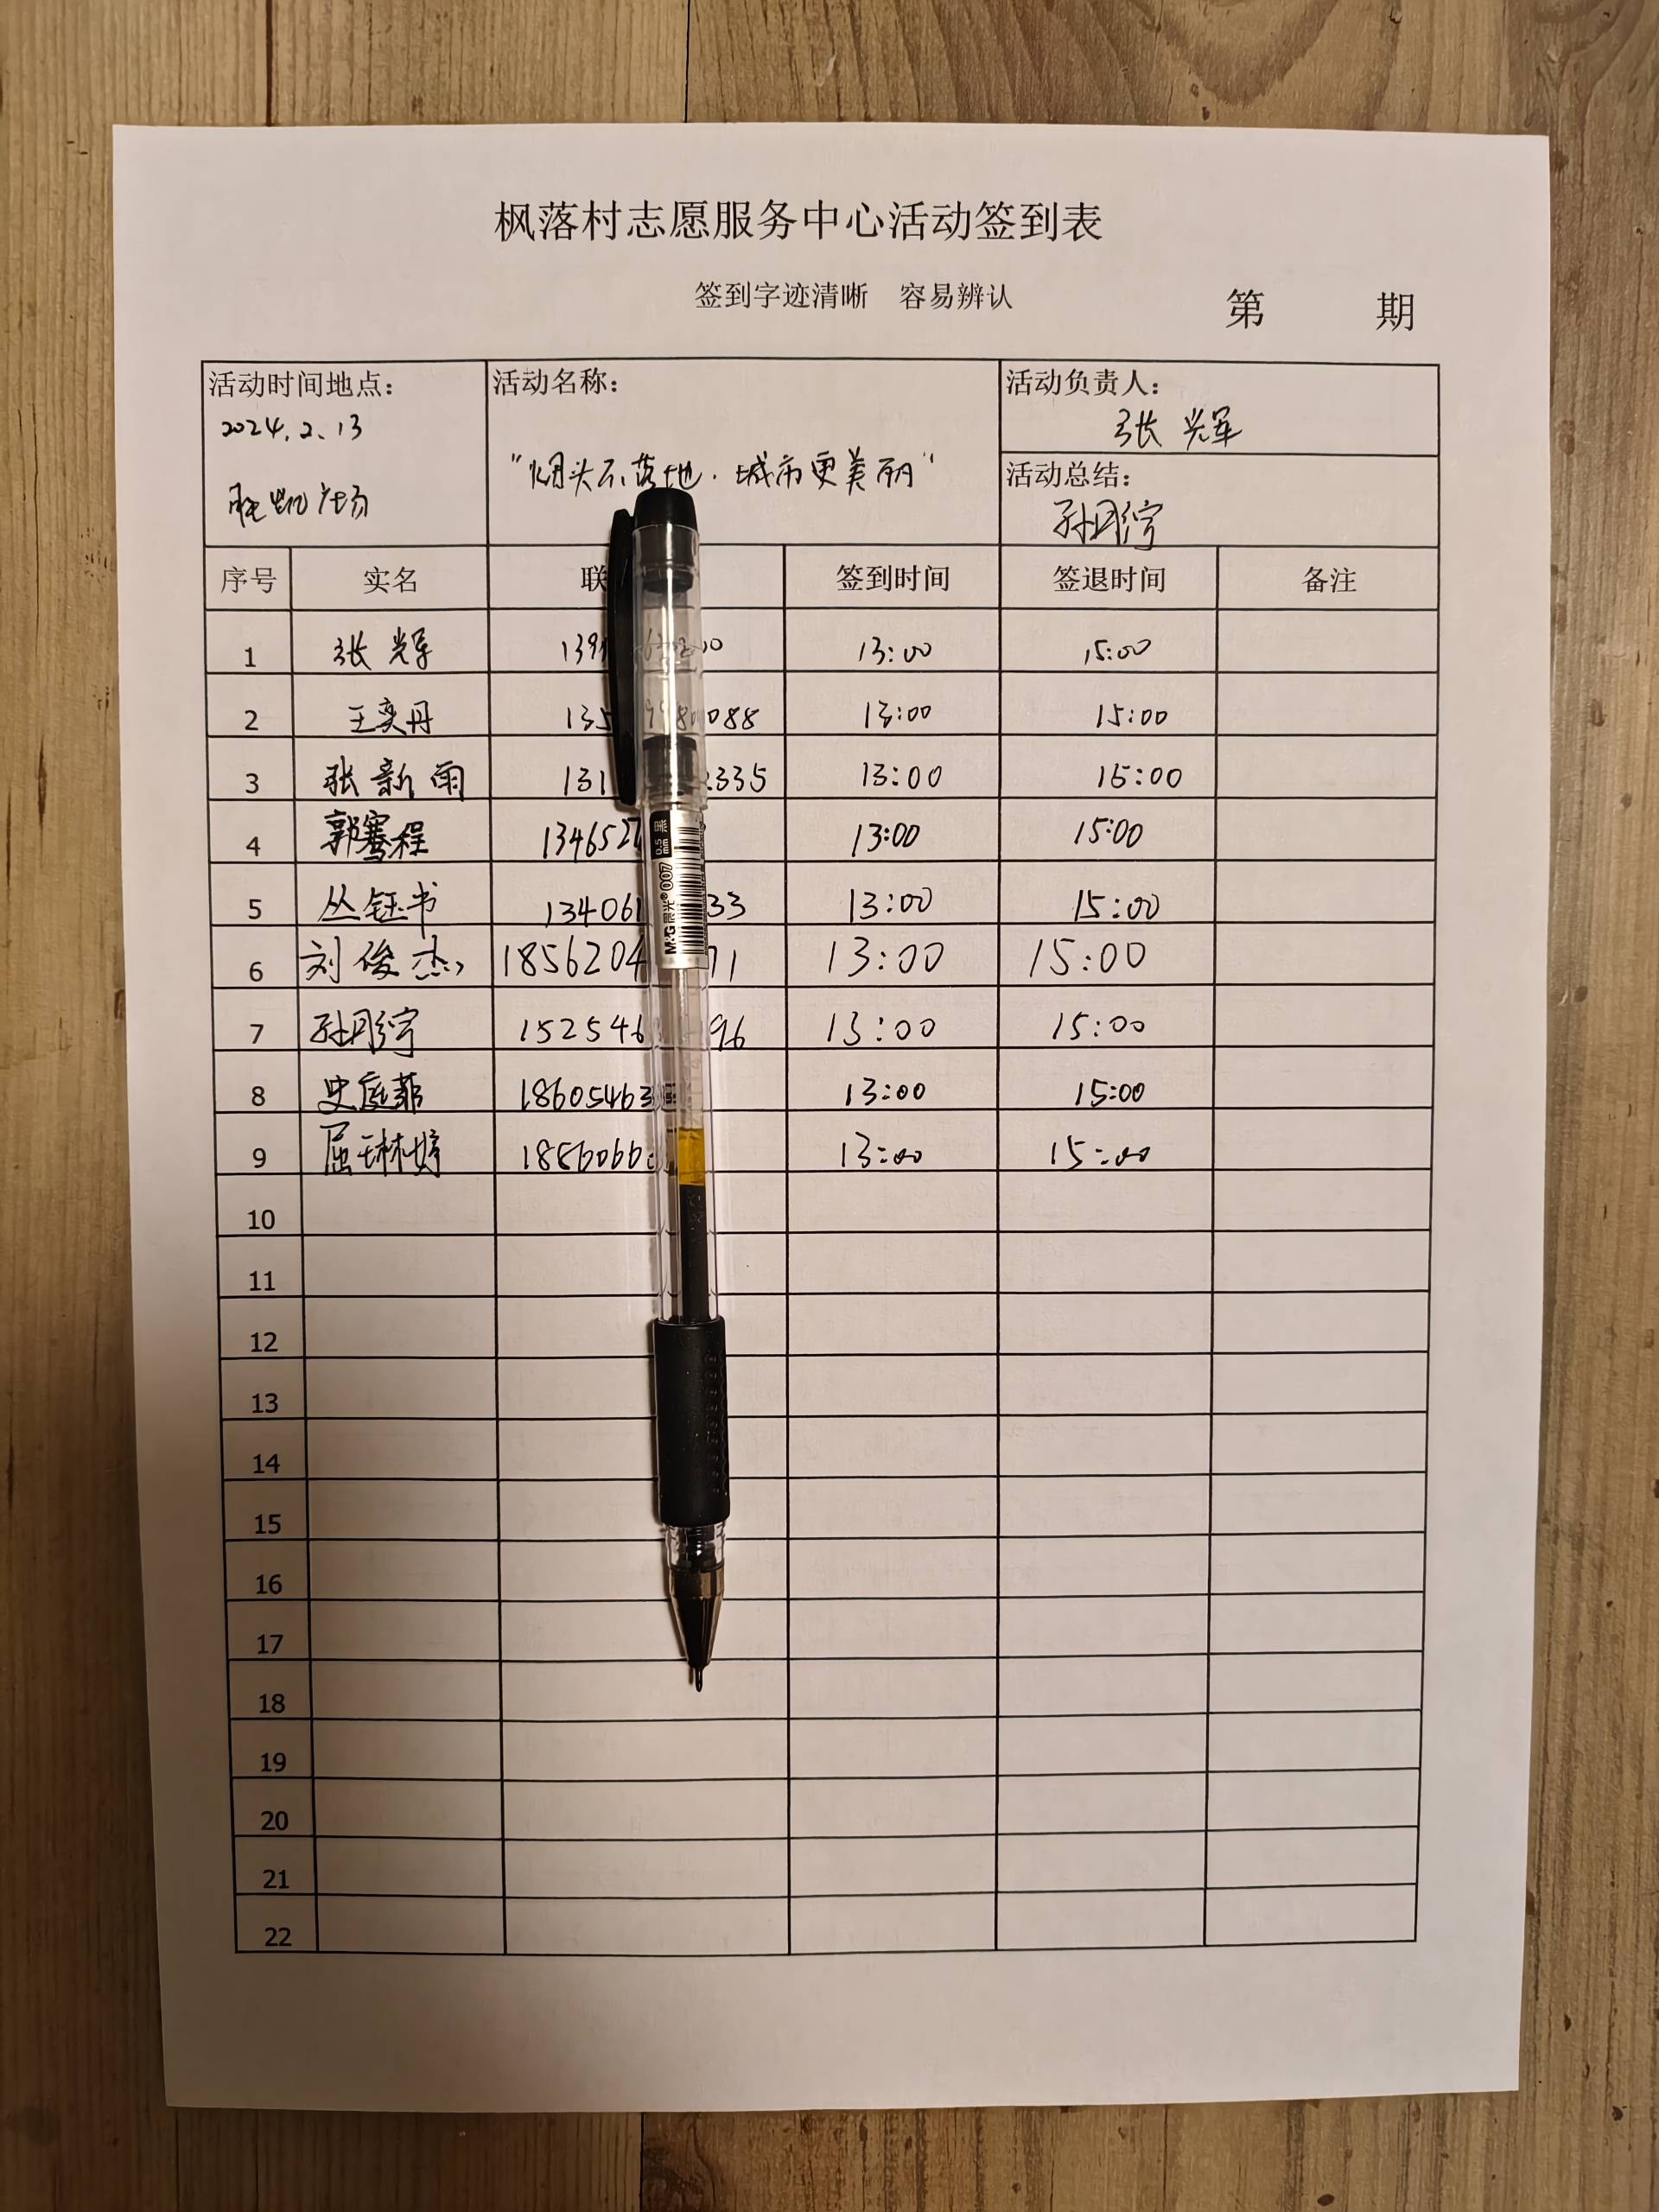 枫落村志愿服务中心活动签到表
签到字迹清晰 容易辨认
第 期
活动时间地点：
2024.2.13
广场
活动名称：
"烟头不落地.城市更美丽"
活动负责人：
张辉
活动总结：
孙彤宇
序号 实名 联 签到时间 签退时间 备注
1 张辉 13:00 15:00
2 王奕丹 135 088 13:00 15:00
3 张新雨 131 335 13:00 15:00
4 郭骞程 134652 13:00 15:00
5 丛钰书 134061 33 13:00 15:00
6 刘俊杰 1856204 71 13:00 15:00
7 孙彤宇 152546 96 13:00 15:00
8 史庭菲 18605463 13:00 15:00
9 屈琳婷 13:00 15:00
10
11
12
13
14
15
16
17
18
19
20
21
22
M&G晨光®007 0.5mm 黑